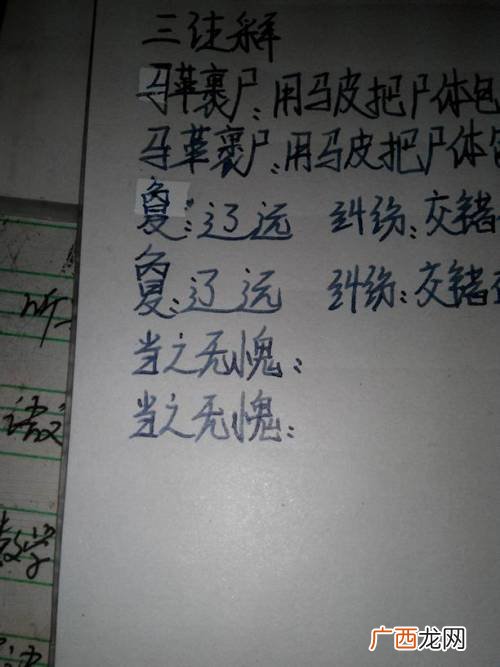 三
马革裹尸：用马皮把尸体包
马革裹尸：用马皮把尸体包
敻：辽远 纠纷：交错
敻：辽远 纠纷：交错
当之无愧：
当之无愧：
听
数学
广西龙网